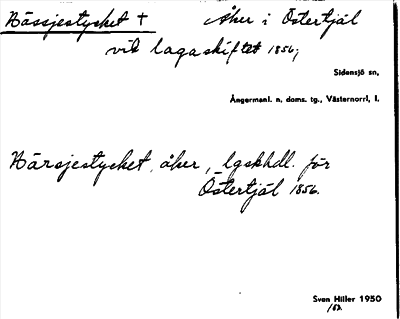 Hässjestycket † Åker i Östertjäl
vid lagaskiftet 1856;
Sidensjö sn,
Ångermanl. n. doms. tg., Västernorrl. l.
Härsjestycket, åker, lgskhdl. för
Östertjäl 1856.
Sven Hiller 1950
/52.